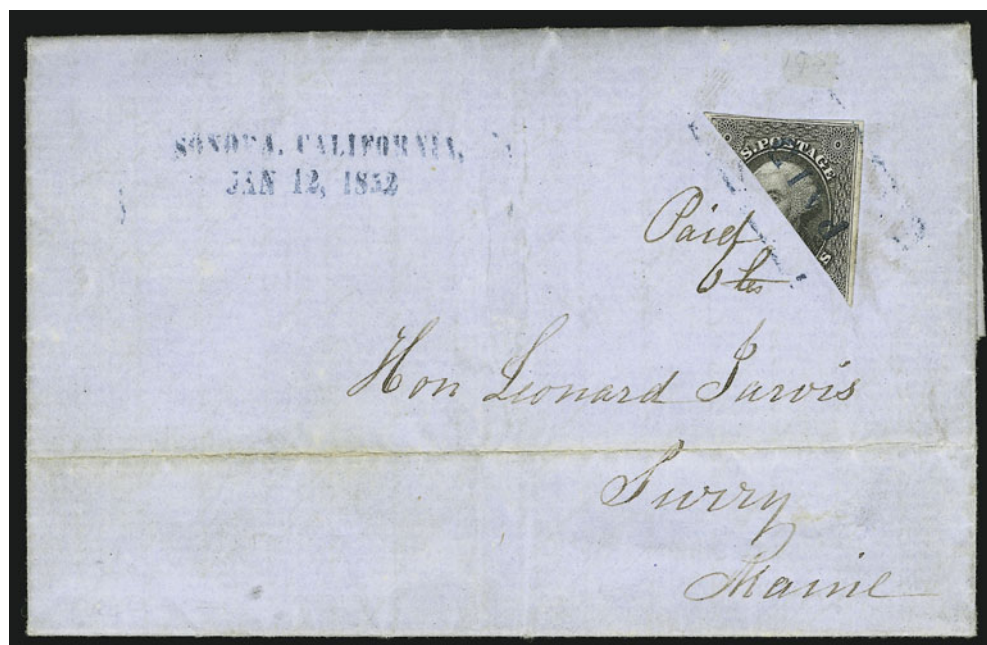 SONOMA, CALIFORNIA,
JAN 12, 1852
S. POSTAGE
PAID
Paid
6 cts
Hon Leonard Jarvis
Surry
Maine